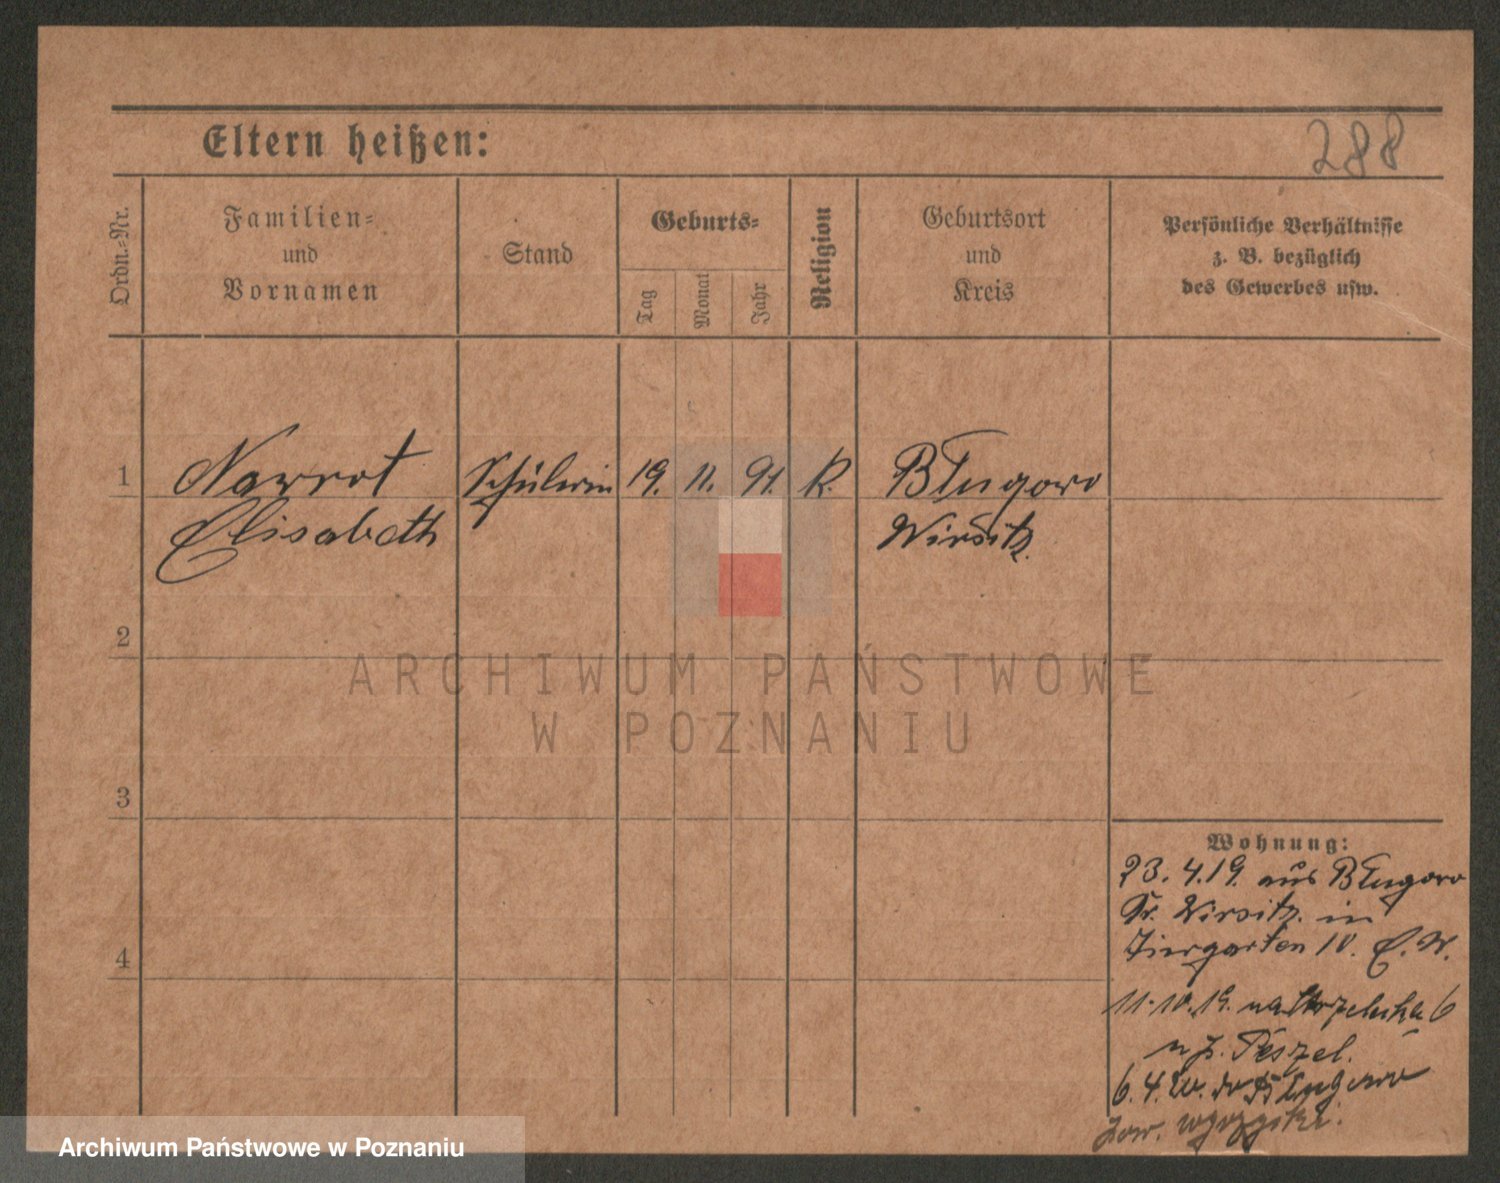 Eltern heißen:
288
Ordn.-Nr.
Familien-
und
Vornamen
Stand
Geburts-
Tag
Monat
Jahr
Religion
Geburtsort
und
Kreis
Persönliche Verhältnisse
z. B. bezüglich
des Gewerbes usw.
1 Nawrot Schülerin 19. 11. 91. K. Bługowo
Elisabeth Wirsitz.
2
ARCHIWUM PAŃSTWOWE
W POZNANIU
3
Wohnung:
23.4.19. aus Bługowo
Kr. Wirsitz. in
Tiergarten 10. E.W.
4
11.10.19. na 6
u p.
6.4.20. do Bługowo
pow. wyrzyski.
Archiwum Państwowe w Poznaniu